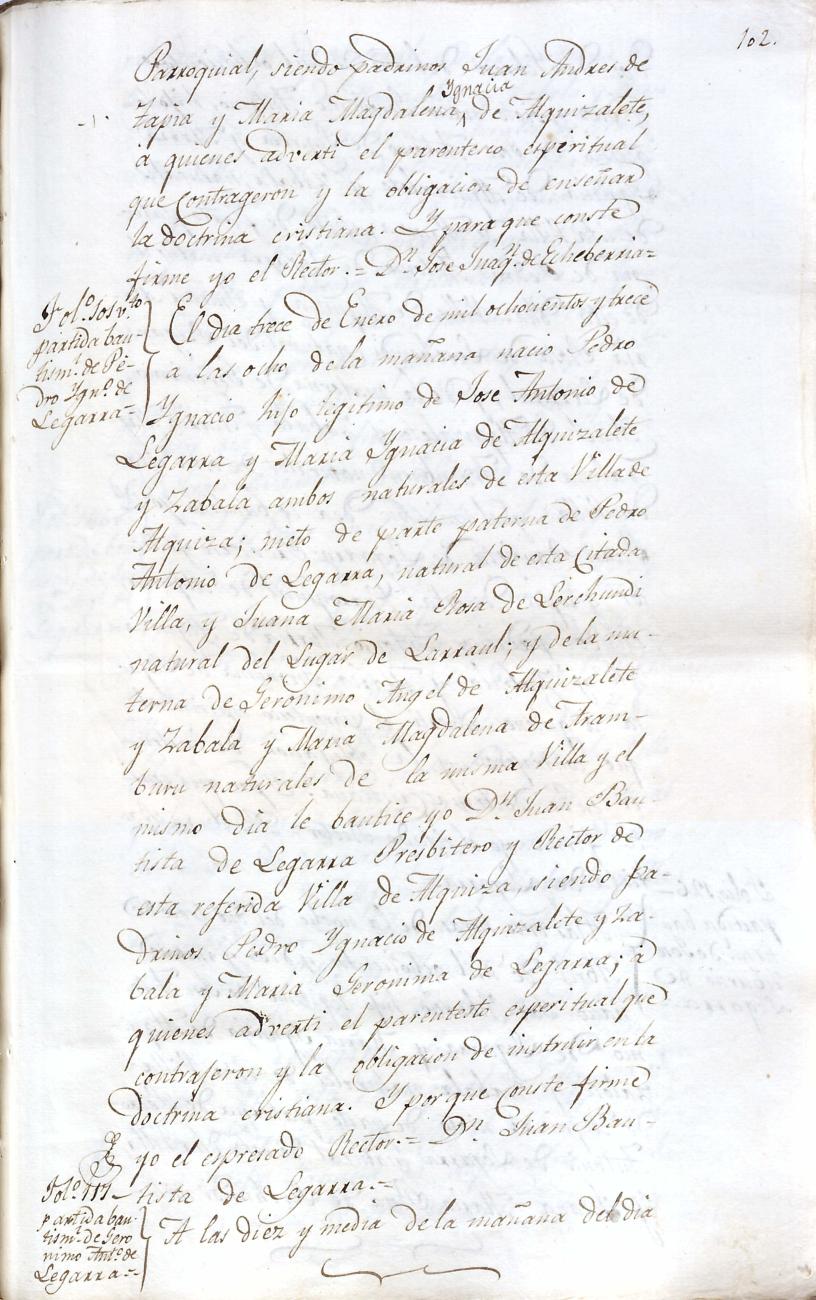 102.
Parroquial, siendo padrinos Juan Andres de
Zapia y Maria Magdalena Ygnacia de Alquizalete,
á quienes adverti el parentesco espiritual
que contrageron y la obligacion de enseñar
la doctrina cristiana. Y para que conste
firme yo el Rector.= Dn. Jose Juaqn. de Echeberria=
Folo. 101 vto
partida bau-
tisml. de Pe-
dro Ygno. de
Legarra=
El dia trece de Enero de mil ochocientos y trece
á las ocho de la mañana nacio Pedro
Ygnacio hijo legitimo de Jose Antonio de
Legarra y Maria Ygnacia de Alquizalete
y Zabala ambos naturales de esta Villa de
Alquiza; nieto de parte paterna de Pedro
Antonio de Legarra, natural de esta citada
Villa, y Juana Maria Rosa de Lerchundi
natural del Lugar de Larraul; y de la ma-
terna de Geronimo Angel de Alquizalete
y Zabala y Maria Magdalena de Aram-
buru naturales de la misma Villa y el
mismo dia le bautice yo Dn. Juan Bau-
tista de Legarra Presbitero y Rector de
esta referida Villa de Alquiza, siendo pa-
drinos Pedro Ygnacio de Alquizalete y Za-
bala y Maria Geronima de Legarra; á
quienes adverti el parentesto espiritual que
contrajeron y la obligacion de instruir en la
doctrina cristiana. Y por que conste firme
yo el espresado Rector.= Dn. Juan Bau-
tista de Legarra.=
Folo. 111
partida bau-
tisml. de Gero
nimo Anto. de
Legarra=
A las diez y media de la mañana del dia